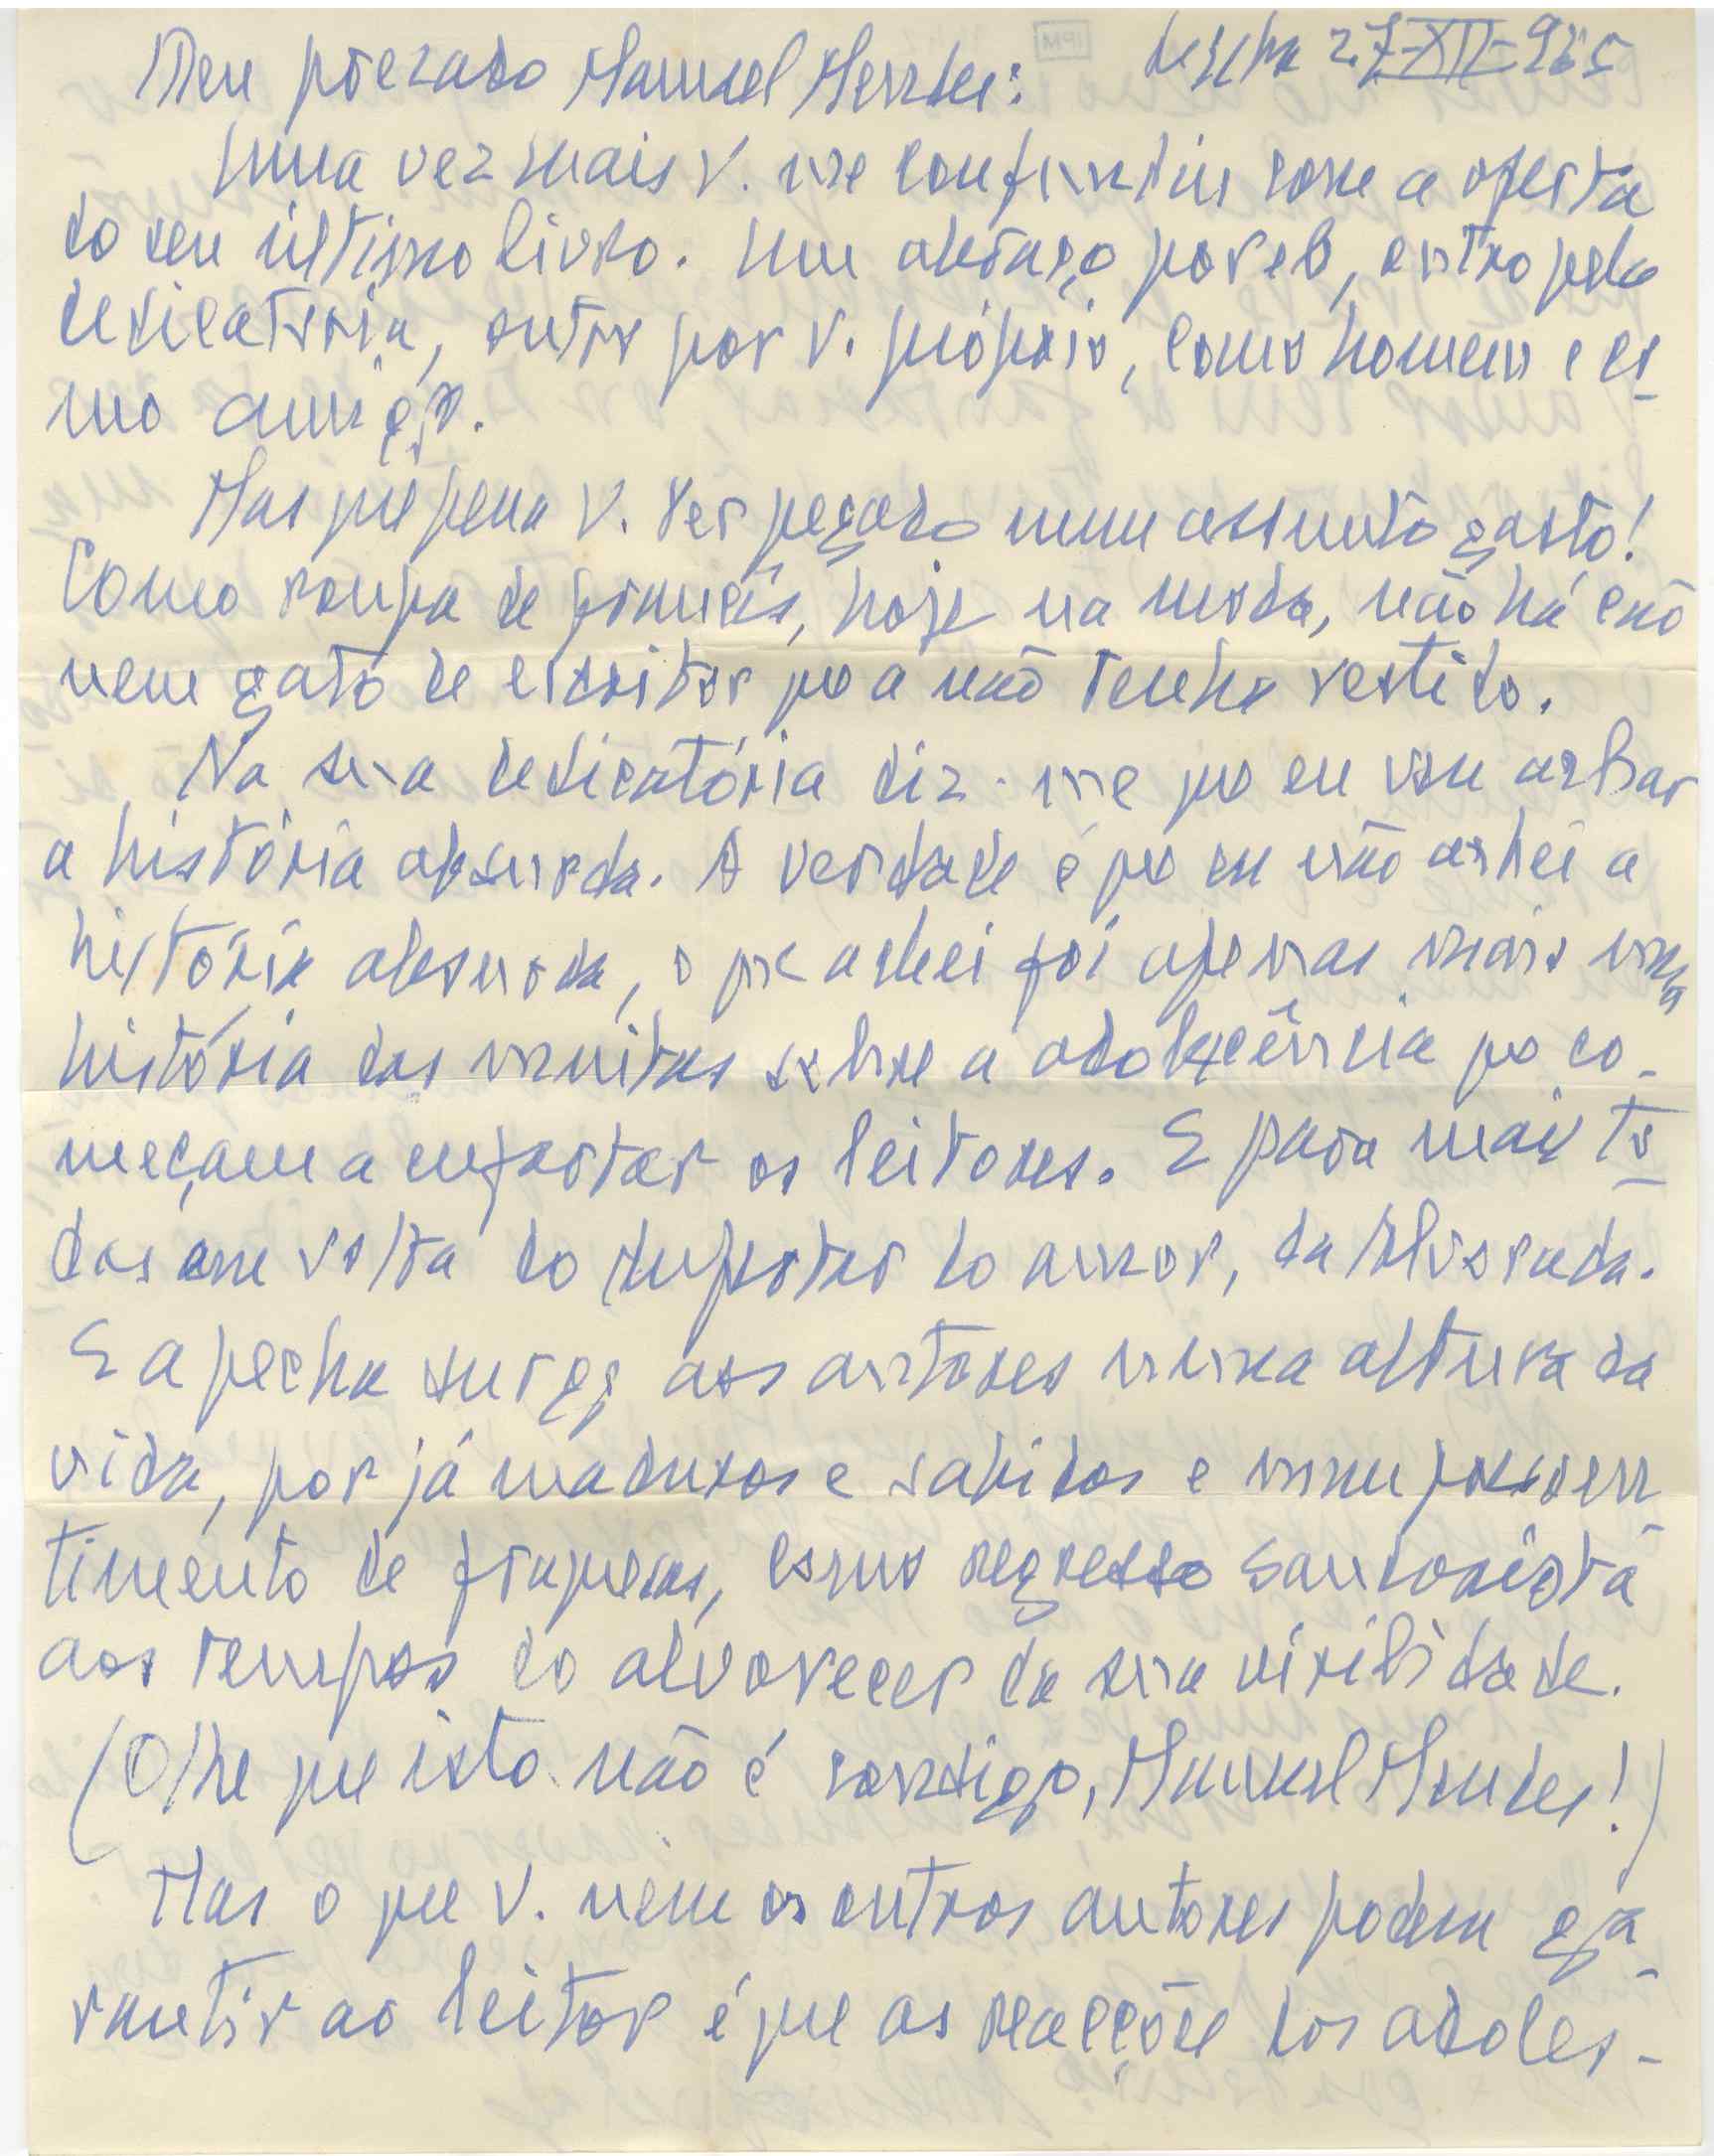 Meu prezado Manuel Mendes: 27-XII-965
Uma vez mais V. me confundiu com a oferta
do seu último livro. Um abraço por ele, outro pela
dedicatória, outro por V. próprio, como homem e co-
mo amigo.
Mas que pena V. ter pegado num assunto gasto!
Como roupa de franciês, hoje na moda, não há cão
nem gato de escritor que a não tenha vestido.
Na sua dedicatória diz-me que eu vou achar
a história absurda. A verdade é que eu não achei a
história absurda, o que achei foi apenas mais uma
história das muitas sobre a adolescência que co-
meçam a enfartar os leitores. E para mais to-
das em volta do despertar do amor, da
E a pecha surge aos autores numa altura da
vida, por já maduros e sabidos e num pressen
timento de fraquezas, como regresso saudosista
aos tempos do alvorecer da sua virilidade.
(Olhe que isto não é consigo, Manuel Mendes!)
Mas o que V. nem os outros autores podem ga-
rantir ao leitor é que as reacções dos adoles-